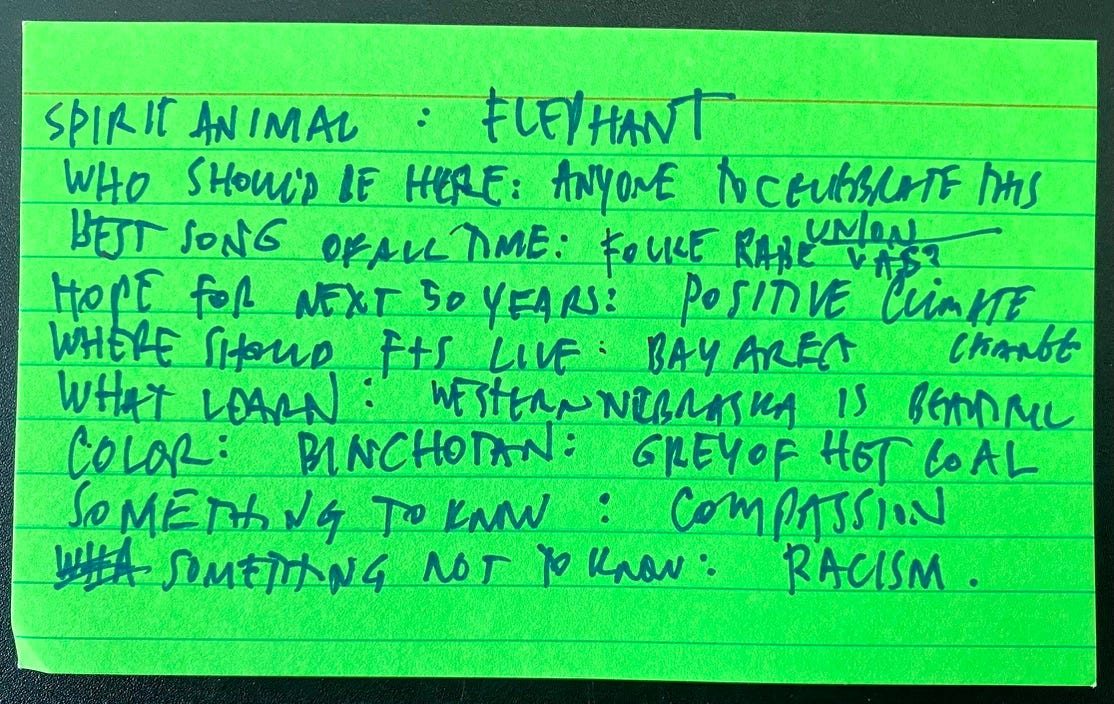 SPIRIT ANIMAL : ELEPHANT
WHO SHOULD BE HERE: ANYONE TO CELEBRATE THIS
BEST SONG OF ALL TIME: FOLKE RABE UNION VAS?
HOPE FOR NEXT 50 YEARS: POSITIVE CLIMATE
WHERE SHOULD F+S LIVE: BAY AREA CHANGE
WHAT LEARN: WESTERN NEBRASKA IS BEAUTIFUL
COLOR: BINCHOTAN: GREY OF HOT COAL
SOMETHING TO KNOW : COMPASSION
SOMETHING NOT TO KNOW: RACISM.